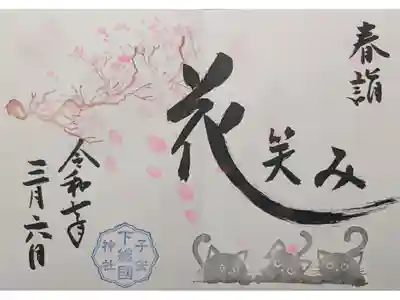 春詣
花笑み
令和七年
三月六日
子安
下總國
神社